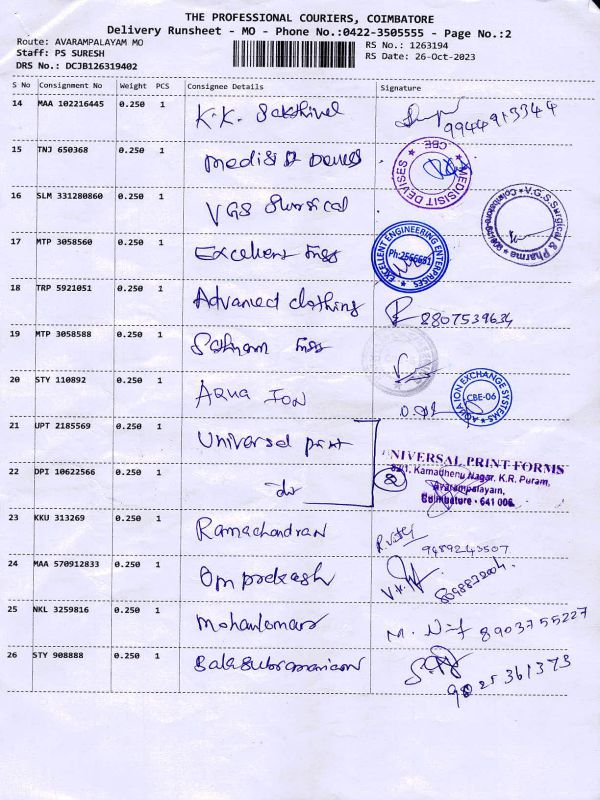 THE PROFESSIONAL COURIERS, COIMBATORE
Delivery Runsheet - MO - Phone No.:0422-3505555 - Page No.:2
Route: AVARAMPALAYAM MO
Staff: PS SURESH
DRS No.: DCJB126319402
RS No.: 1263194
RS Date: 26-Oct-2023
S No Consignment No Weight PCS Consignee Details Signature
14 MAA 102216445 0.250 1 K.K. Sakthivel 9944913344
15 TNJ 650368 0.250 1
MEDISIT DEVISES ★ CBE ★
16 SLM 331280860 0.250 1 VGS Surgical
V.G.S.Surgical & Pharma
17 MTP 3058560 0.250 1 Excellent Engg
EXCELLENT ENGINEERING ENTERPRISES ★
Ph:2566681
18 TRP 5921051 0.250 1 Advanced clothing 8807539634
19 MTP 3058588 0.250 1 Engg
20 STY 110892 0.250 1 AQUA ION
AQUA ION EXCHANGE SYSTEMS ★
CBE-06
21 UPT 2185569 0.250 1 Universal print
UNIVERSAL PRINT FORMS
Kamadhenu Nagar, K.R. Puram,
Avarampalayam,
Coimbatore - 641 006
22 DPI 10622566 0.250 1 do 2
23 KKU 313269 0.250 1 Ramachandran 9489243507
24 MAA 570912833 0.250 1 Om prakash
25 NKL 3259816 0.250 1 Mohankumar 8903755227
26 STY 908888 0.250 1 Balasubramaniam 9025361373